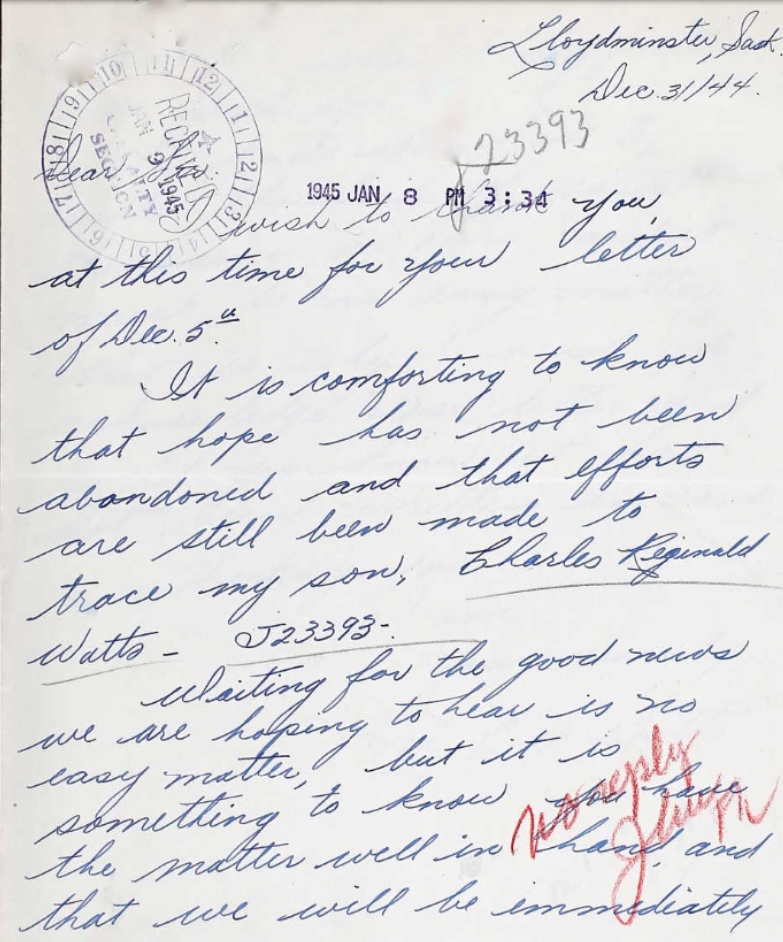 Lloydminster, Sask.
Dec. 31/44.
J23393
RECEIVED
JAN 9 1945
CASUALTY
SECTION
10 11 12 1 2 3 4 5 6 7 8 9
1945 JAN 8 PM 3:34
Dear Sir
wish to thank you,
at this time for your letter
of Dec. 5th.
It is comforting to know
that hope has not been
abandoned and that efforts
are still been made to
trace my son, Charles Reginald
Watts - J23393-.
Waiting for the good news
we are hoping to hear is no
easy matter, but it is
something to know you have
the matter well in hand, and
that we will be immediately
no reply